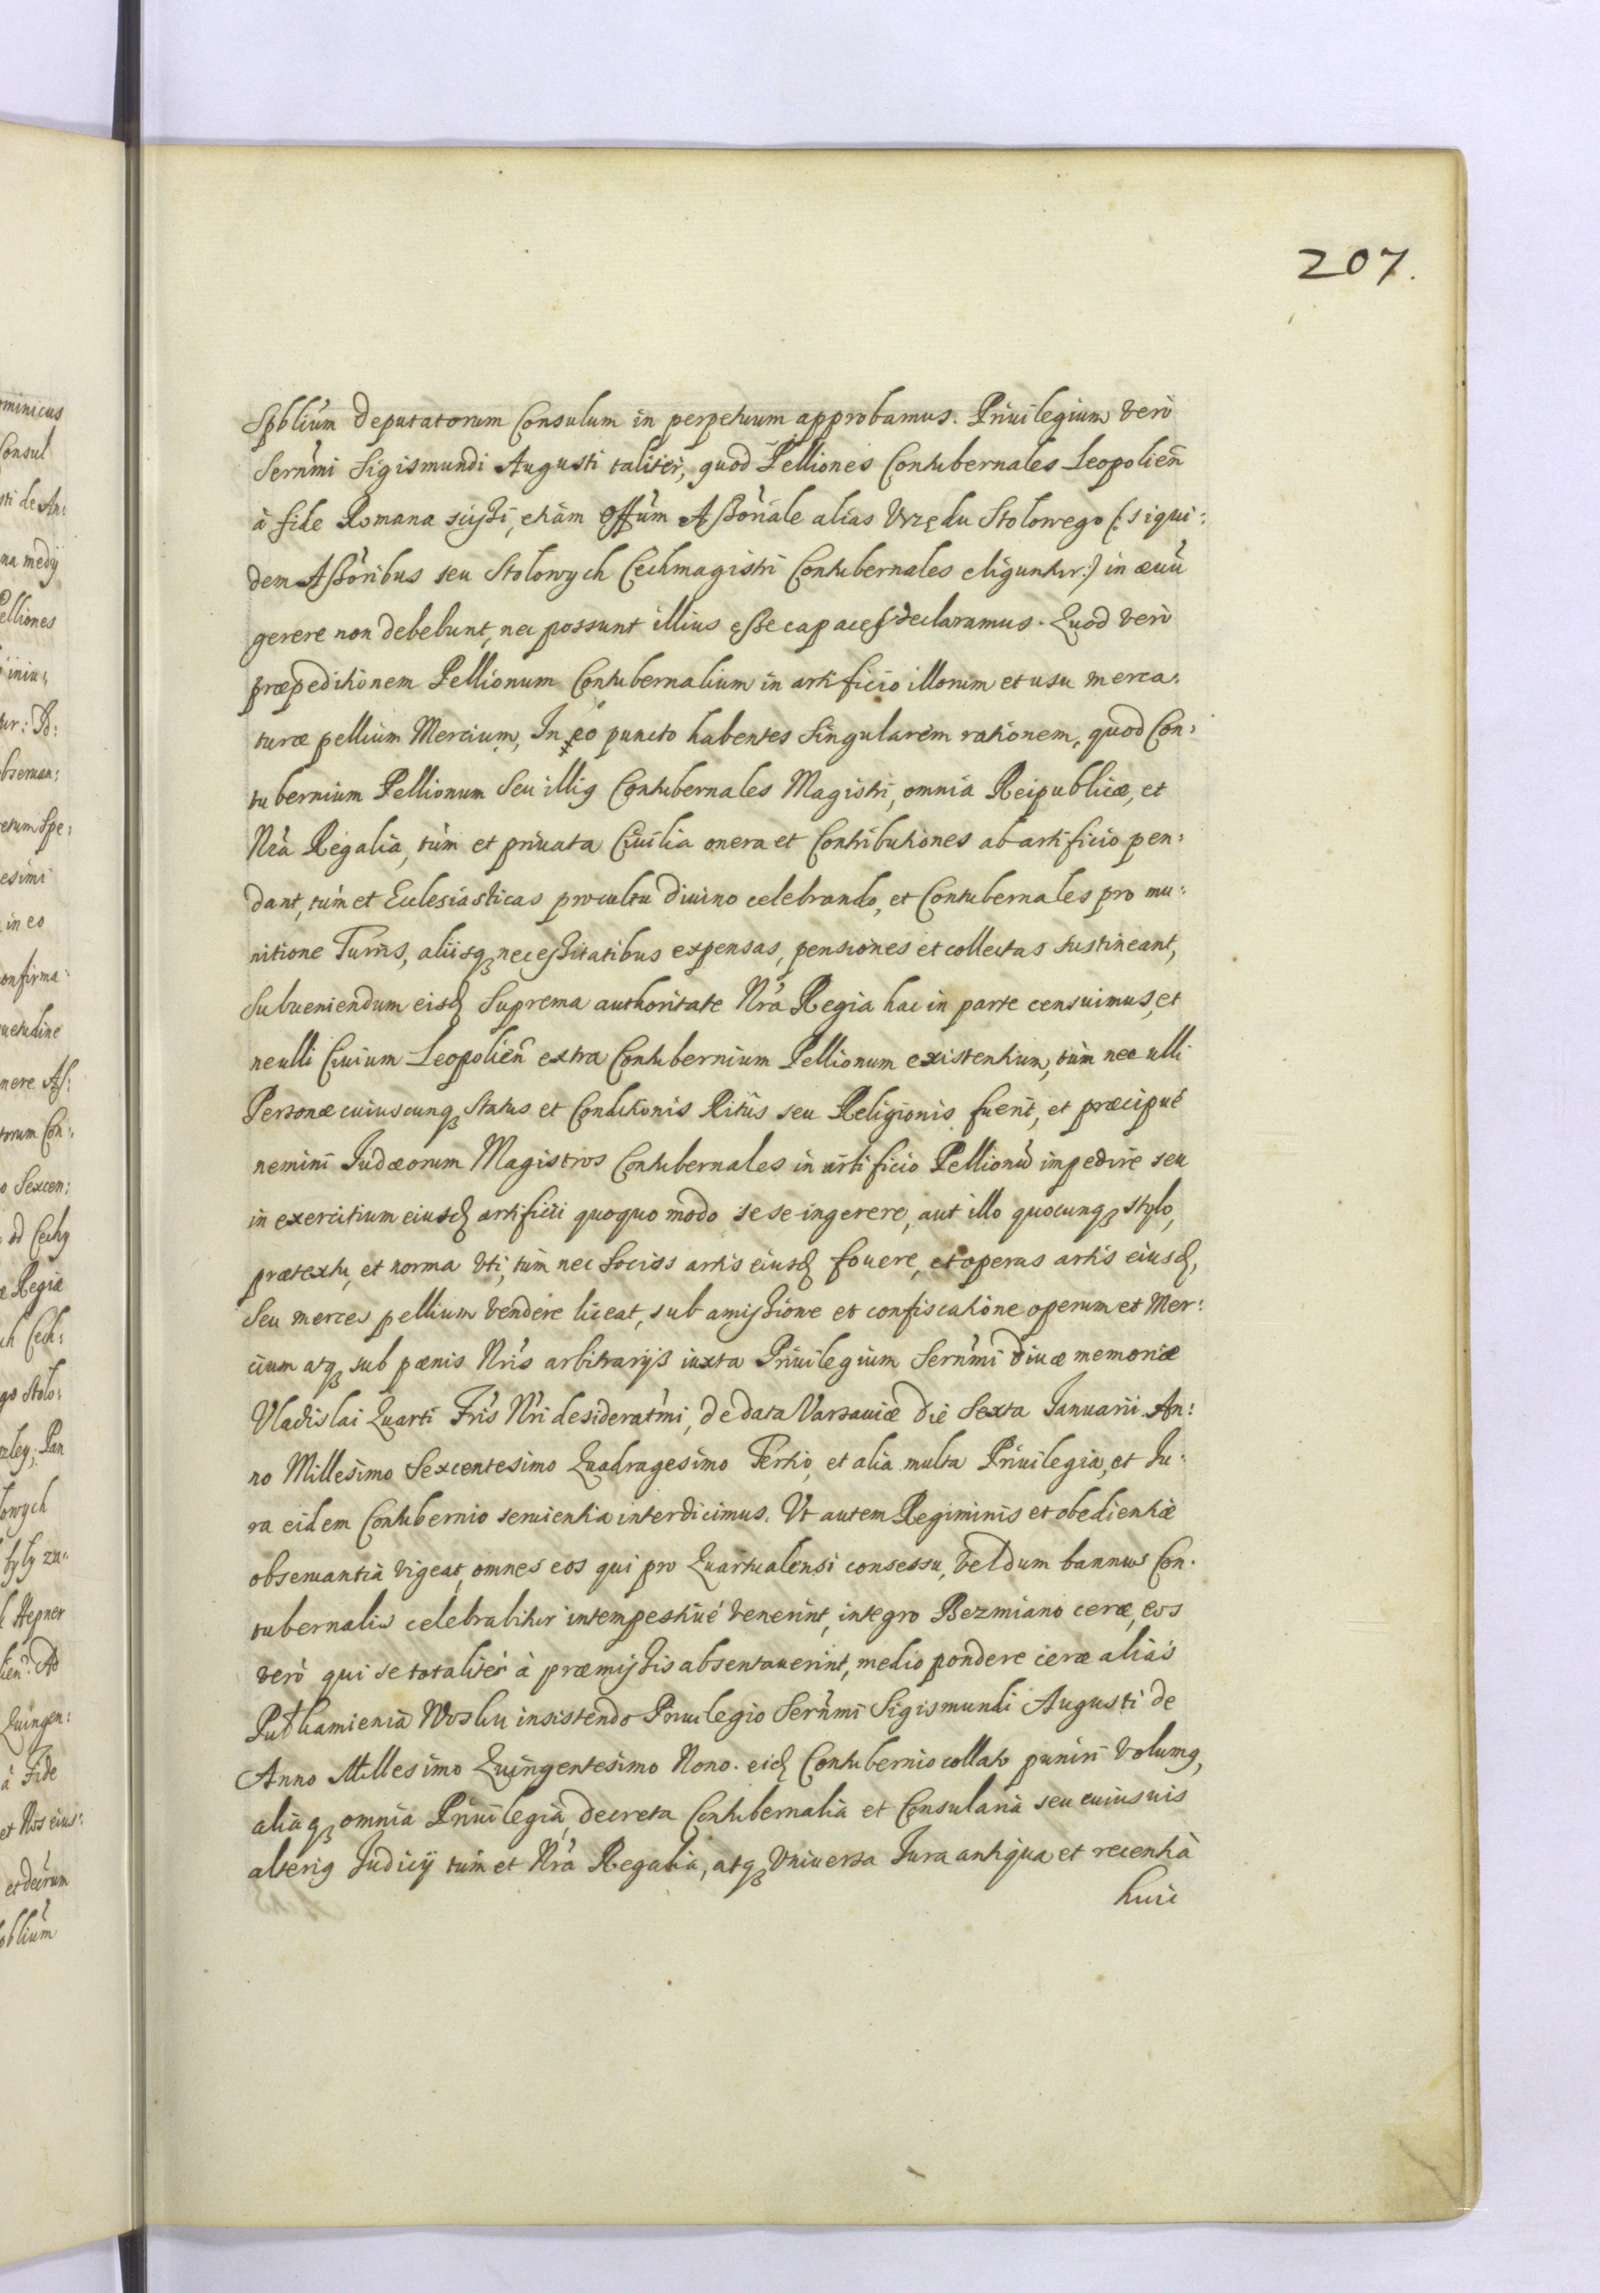 207.
Spblium deputatorum Consulum in perpetuum approbamus. Priuilegium verò
Sernmi Sigismundi Augusti taliter, quod Pelliones Contubernales Leopolien
à fide Romana scissi, etiam Offum Assoriale alias Vrzędu Stolowego (: siqui:
dem Assoribus seu Stolowych Cechmagistri Contubernales eliguntur:) in æuu
gerere non debebunt, nec possunt illius esse capaces declaramus. Quod verò
præpeditionem Pellionum Contubernalium in artificio illorum et usu merca:
turæ pellium Mercium, In eo puncto habentes singularem rationem, quod Con:
tubernium Pellionum seu illiq Contubernales Magistri, omnia Reipublicæ, et
Nra Regalia, tùm et priuata Ciuilia onera et Contributiones ab artificio pen:
dant, tùm et Ecclesiasticas pro cultu diuino celebrando, et Contubernales pro mu:
nitione Turris, aliisq necessitatibus expensas, pensiones et collectas sustineant,
subueniendum eisd suprema authoritate Nra Regia hac in parte censuimus, et
ne ulli Ciuium Leopolien extra Contubernium Pellionum existentium, tùm nec ulli
Personæ cuiuscunq status et Conditionis Ritûs seu Religionis fuerit, et præcipuè
nemini Judæorum Magistros Contubernales in artificio Pellionu impedire seu
in exercitium eiusd artificii quoquo modo sese ingerere, aut illo quocunq stylo,
prætextu, et norma vti, tùm nec socios artis eiusd fouere, et operas artis eiusd,
seu merces pellium vendere liceat, sub amissione et confiscatione operum et Mer:
cium atq sub pœnis Nris arbitrarijs iuxta Priuilegium Sernmi diuæ memoriæ
Vladislai Quarti Fris Nri desideratmi, de data Varsauiæ die Sexta Januarii An:
no Millesimo Sexcentesimo Quadragesimo Tertio, et alia multa Priuilegia, et Ju:
ra eidem Contubernio seruientia interdicimus. Vt autem Regiminis et obedientiæ
obseruantia vigeat, omnes eos qui pro Quartualensi consessu, vel dum bannus Con:
tubernalis celebrabitur intempestiuè venerint, integro Bezmiano ceræ, eos
verò qui se totaliter à præmissis absentauerint, medio pondere ceræ aliàs
Puł kamienia Wosku insistendo Priuilegio Sernmi Sigismundi Augusti de
Anno Millesimo Quingentesimo Nono. eid Contubernio collato puniri volumq,
aliaq omnia Priuilegia, decreta Contubernalia et Consularia seu cuiusuis
alteriq Judicij tùm et Nra Regalia, atq vniuersa Jura antiqua et recentia
huic